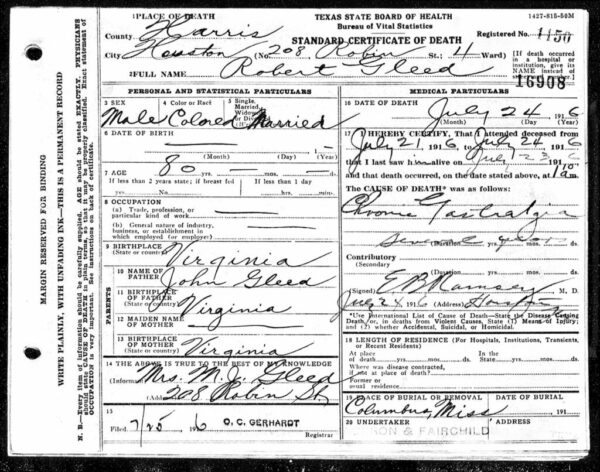 PLACE OF DEATH
TEXAS STATE BOARD OF HEALTH
1427-815-50M
County Harris
Bureau of Vital Statistics
STANDARD CERTIFICATE OF DEATH
Registered No. 1150
City Houston (No. 208 Robin St; 4 Ward)
[If death occurred in a hospital or institution, give its NAME instead of
2 FULL NAME Robert Gleed
16908
PERSONAL AND STATISTICAL PARTICULARS
3 SEX
Male
4 Color or Race
Colored
5 Single, Married,
Married
6 DATE OF BIRTH
(Month) (Day) (Year)
7 AGE
80 yrs. mos. ds.
If less than 2 years state; if breast fed
If less than 1 day
8 OCCUPATION
(a) Trade, profession, or
particular kind of work
(b) General nature of industry,
business, or establishment in
which employed (or employer)
9 BIRTHPLACE
(State or country) Virginia
PARENTS
10 NAME OF
FATHER John Gleed
11 BIRTHPLACE
OF FATHER
(State or country) Virginia
12 MAIDEN NAME
OF MOTHER
13 BIRTHPLACE
OF MOTHER
(State or country) Virginia
14 THE ABOVE IS TRUE TO THE BEST OF MY KNOWLEDGE
(Informant) Mrs. M. J. Gleed
(Address) 208 Robin St
15
Filed 7/25 1916
O. C. GERHARDT
Registrar
MEDICAL PARTICULARS
16 DATE OF DEATH
July 24 1916
(Month) (Day) (Year)
17 I HEREBY CERTIFY, That I attended deceased from
July 21, 1916, to July 24 1916
that I last saw him alive on July 23 1916
and that death occurred, on the date stated above, at 1 am.
The CAUSE OF DEATH* was as follows:
Chronic Gastralgia
Several years
Contributory
(Secondary)
(Duration) yrs. mos. ds.
(Signed) E B Ramsey M. D.
July 24 1916 (Address) Houston
*Use International List of Cause of Death—State the Disease Causing
Death, or, in deaths from Violent Causes, State (1) Means of Injury;
and (2) whether Accidental, Suicidal, or Homicidal.
18 LENGTH OF RESIDENCE (For Hospitals, Institutions, Transients,
or Recent Residents)
At place
of death yrs. mos. ds.
In the
State yrs. mos. ds.
Where was disease contracted,
if not at place of death?
Former or
usual residence
19 PLACE OF BURIAL OR REMOVAL
DATE OF BURIAL
Columbus, Miss 191
20 UNDERTAKER
& FAIRCHILD
MARGIN RESERVED FOR BINDING
WRITE PLAINLY, WITH UNFADING INK—THIS IS A PERMANENT RECORD
N. B.—Every item of information should be carefully supplied. AGE should be stated EXACTLY. PHYSICIANS
should state CAUSE OF DEATH in plain terms, so that it may be properly classified. Exact statement of
OCCUPATION is very important. See instructions on back of certificate.